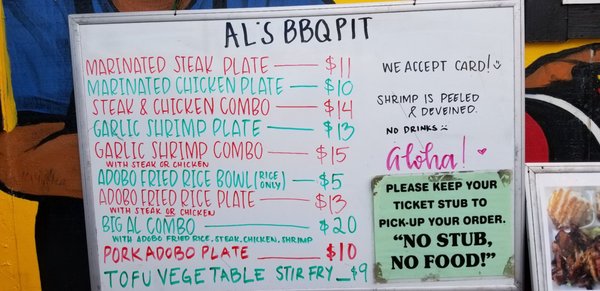 AL'S BBQ PIT
MARINATED STEAK PLATE — $11
MARINATED CHICKEN PLATE — $10
STEAK & CHICKEN COMBO — $14
GARLIC SHRIMP PLATE — $13
GARLIC SHRIMP COMBO — $15
WITH STEAK OR CHICKEN
ADOBO FRIED RICE BOWL (RICE ONLY) — $5
ADOBO FRIED RICE PLATE — $13
WITH STEAK OR CHICKEN
BIG AL COMBO — $20
WITH ADOBO FRIED RICE, STEAK, CHICKEN, SHRIMP
PORK ADOBO PLATE — $10
TOFU VEGETABLE STIR FRY — $9
WE ACCEPT CARD!
SHRIMP IS PEELED
& DEVEINED.
NO DRINKS
Aloha!
PLEASE KEEP YOUR
TICKET STUB TO
PICK-UP YOUR ORDER.
“NO STUB,
NO FOOD!”